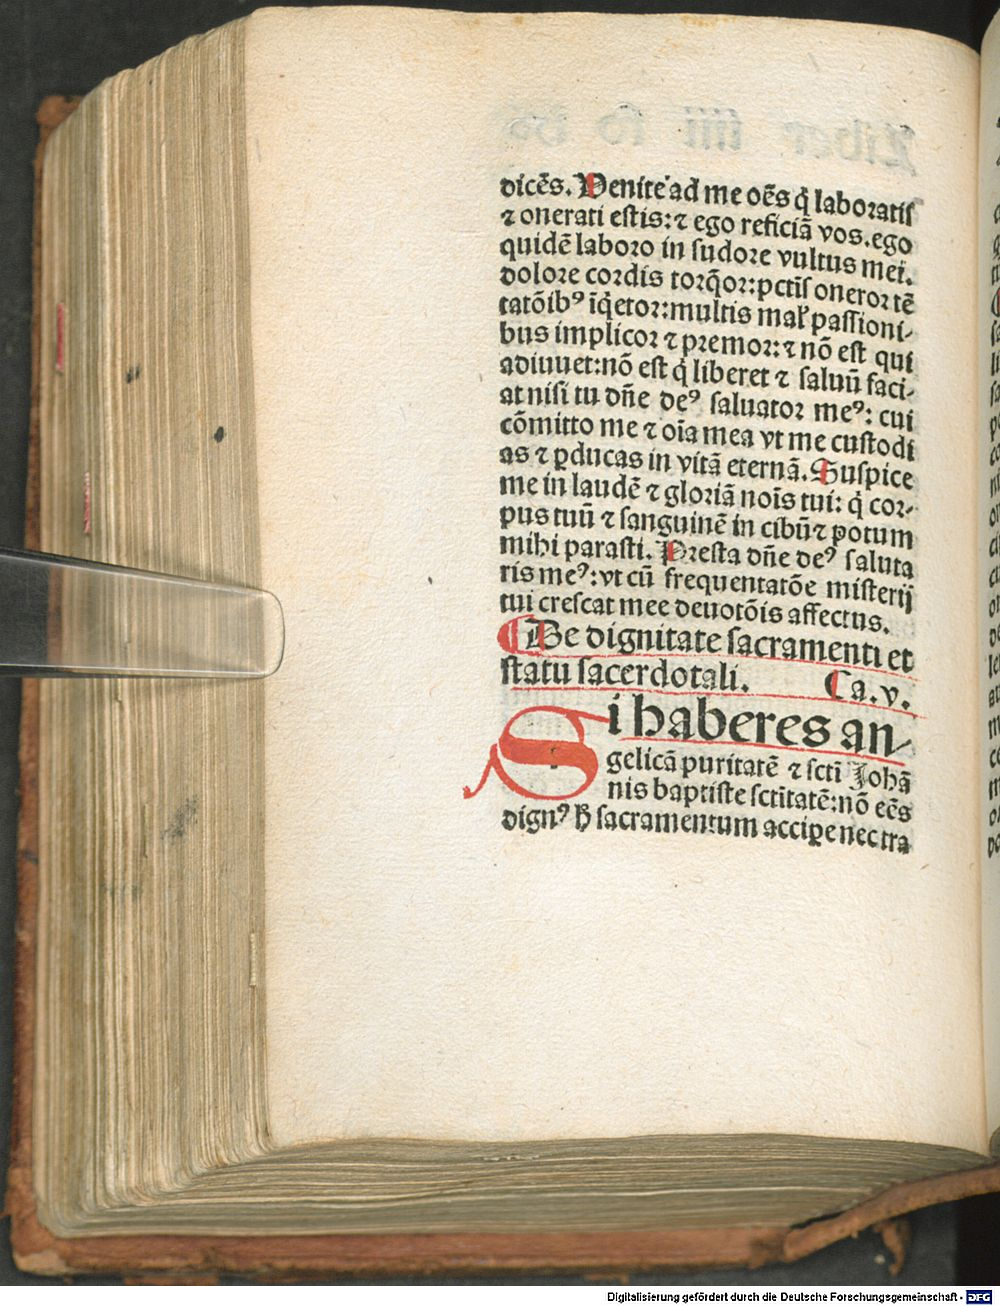 dicēs. Venite ad me oēs q̇ laboratis
⁊ onerati estis: ⁊ ego reficiā vos. ego
quidē laboro in sudore vultus mei.
dolore cordis torq̄or: pctis oneror tē
tatōibꝰ īq̇etor: multis malꝭ passioni⸗
bus implicor ⁊ premor: ⁊ nō est qui
adiuuet: nō est q̇ liberet ⁊ saluū faci⸗
at nisi tu dñe deꝰ saluator meꝰ: cui
cōmitto me ⁊ oīa mea vt me custodi
as ⁊ ꝑducas in vitā eternā. Suspice
me in laudē ⁊ gloriā noīs tui: q̇ cor⸗
pus tuū ⁊ sanguinē in cibū ⁊ potum
mihi parasti. Presta dñe deꝰ saluta
ris meꝰ: vt cū frequentatōe misterij
tui crescat mee deuotōis affectus.
¶ De dignitate sacramenti et
statu sacerdotali. Ca. v.
Si haberes an⸗
gelicā puritatē ⁊ scti Johā
nis baptiste sctitatē: nō eēs
dignꝰ ħ sacramentum accipe nec tra
Digitalisierung gefördert durch die Deutsche Forschungsgemeinschaft - DFG